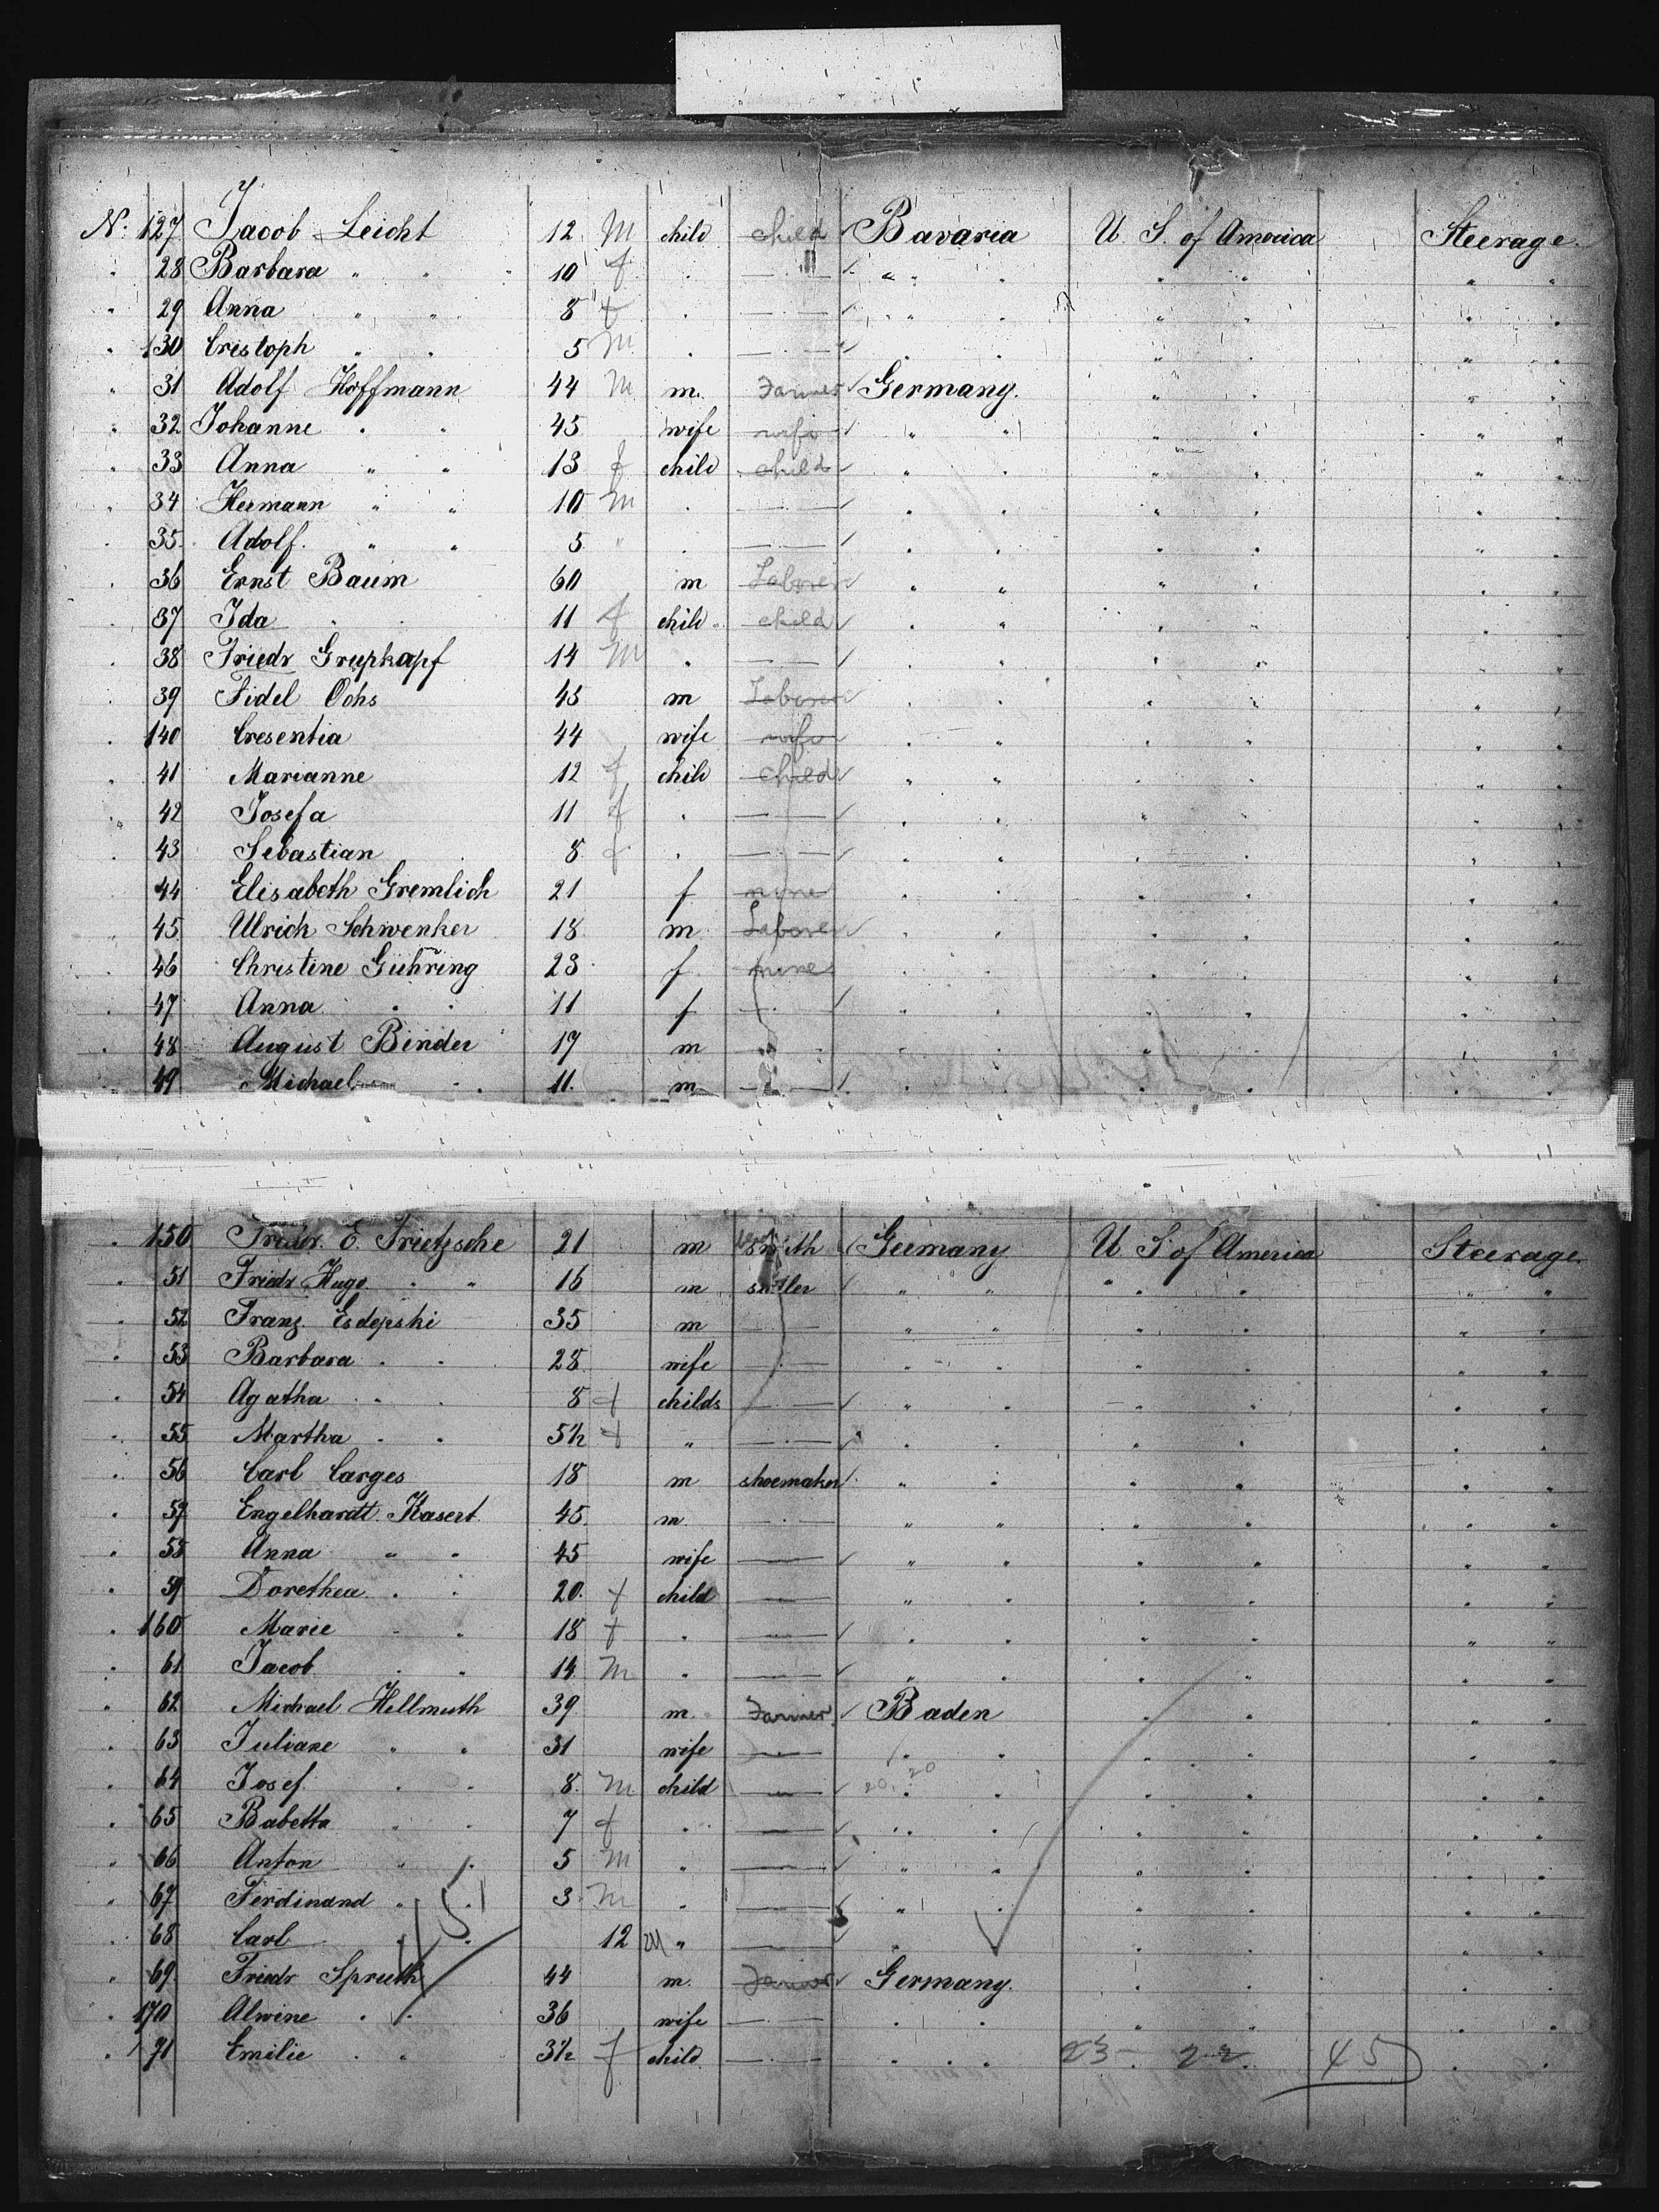 N. 127 Jacob Leicht 12 M child child Bavaria U. S. of America Steerage.
" 28 Barbara " " 10 f " — " — " " " " " "
" 29 Anna " " 8 f " — " — " " " " " "
" 130 Cristoph " " 5 M " — " — " " " " " "
" 31 Adolf Hoffmann 44 M m. Farmer Germany. " " " "
" 32 Johanne " " 45 wife wife " " " " " "
" 33 Anna " " 13 f child child " " " " " "
" 34 Hermann " " 10 M " — " — " " " " " "
" 35 Adolf. " " 5 " " — " — " " " " " "
" 36 Ernst Baum 60 m Laborer " " " " " "
" 37 Ida " " 11 f child child " " " " " "
" 38 Friedr 14 M " — " — " " " " " "
" 39 Fidel Ochs 43 m Laborer " " " " " "
" 140 Cresentia 44 wife wife " " " " " "
" 41 Marianne 12 f child child " " " " " "
" 42 Josefa 11 f " — " — " " " " " "
" 43 Sebastian 8 f " — " — " " " " " "
" 44 Elisabeth Gremlich 21 f none " " " " " "
" 45 Ulrich Schwenker 18 m Laborer " " " " " "
" 46 Christine Gühring 23 f none " " " " " "
" 47 Anna " " 11 f — " — " " " " " "
" 48 August Binder 17 m — " — " " " " " "
" 49 Michael " " 11. m — " — " " " " " "
" 150 Friedr. E. Frietzsche 21 m smith Germany U S of America Steerage.
" 51 Friedr Hugo " " 16 m " " " " " "
" 52 Franz 35 m — " — " " " " " "
" 53 Barbara " " 28 wife — " — " " " " " "
" 54 Agatha " " 8 f childs — " — " " " " " "
" 55 Martha " " 5½ f " — " — " " " " " "
" 56 Carl Carges 18 m shoemaker " " " " " "
" 57 Engelhardt Kasert 45. m. — " — " " " " " "
" 58 Anna " " 45 wife — " — " " " " " "
" 59 Dorethea " " 20. f child — " — " " " " " "
" 160 Marie " " 18 f " — " — " " " " " "
" 61 Jacob " " 14 M " — " — " " " " " "
" 62 Michael Hellmuth 39 m. Farmer Baden " " " "
" 63 Juliane " " 31 wife — " — " " " " " "
" 64 Josef. " " 8. M child — " — 20. 20 " " " "
" 65 Babetta " " 7 f " — " — " " " " " "
" 66 Anton " " 5 M " — " — " " " " " "
" 67 Ferdinand " " 3 M " — " — " " " " " "
" 68 Carl " " 12 M " — " — " " " " " "
" 69 Friedr Spruth 44 m. Farmer Germany. " " " "
" 170 Alwine " " 36 wife — " — " " " " " "
" 171 Emilie " " 3½ f child — " — " " 23 - 22. 45 " "